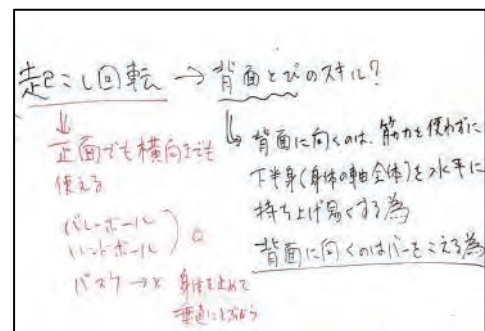 起こし回転 → 背面とびのスキル?
↓
正面でも横向きでも
使える
バレーボール
ハンドボール ) ○
バスケ → × 身体を止めて
垂直にとぶから
↳ 背面に向くのは、筋力を使わずに
下半身(身体の軸全体)を水平に
持ち上げ易くする為
背面に向くのはバーをこえる為